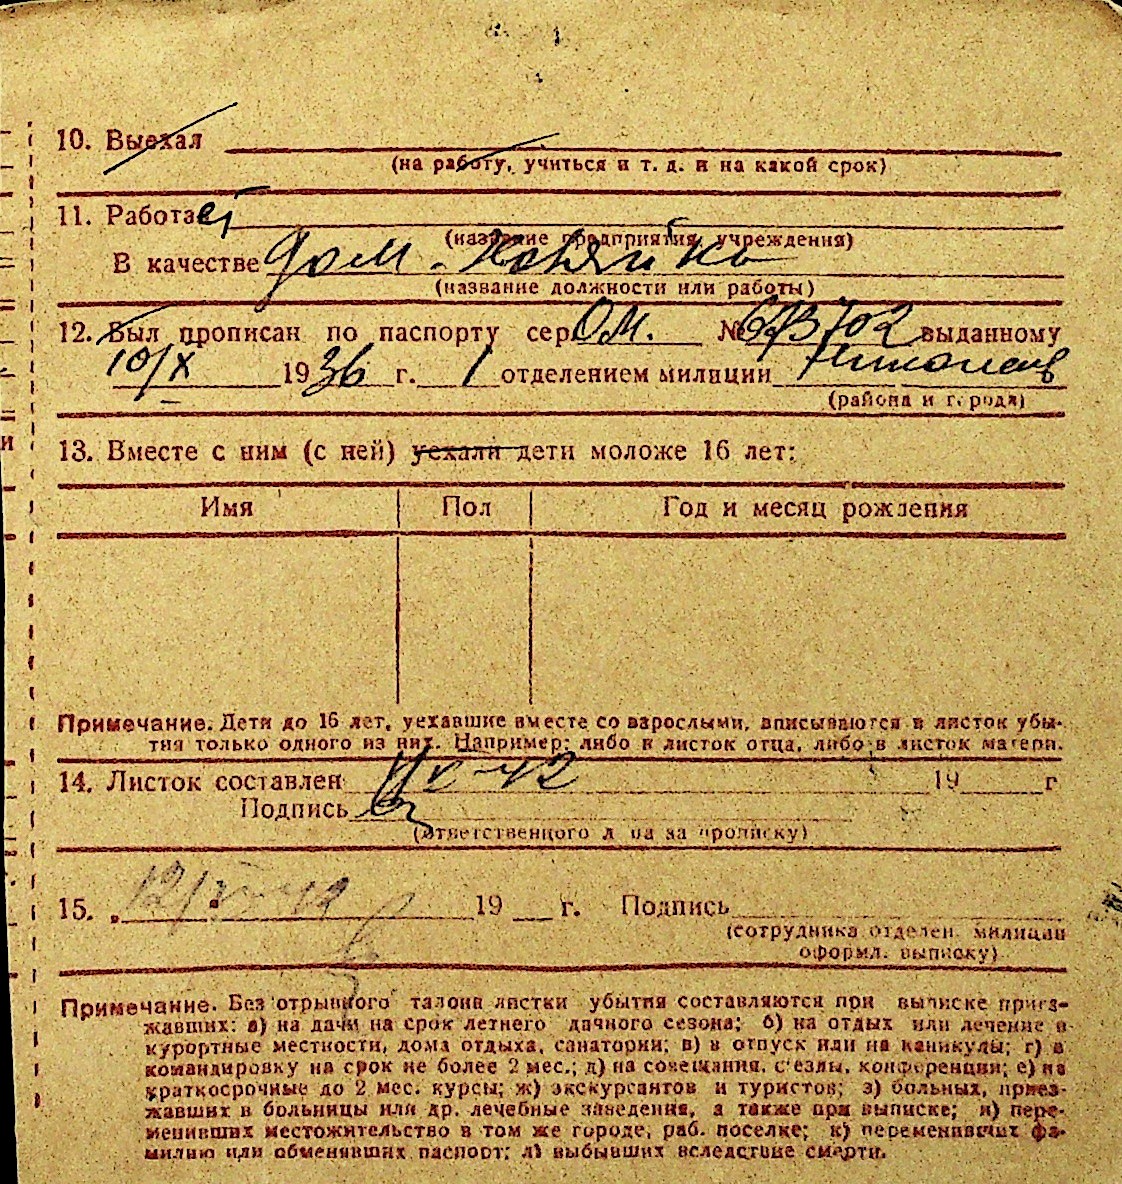 10. Выехал
(на работу, учиться и т. д. и на какой срок)
11. Работает
(название предприятия, учреждения)
В качестве дом-хозяйка
(название должности или работы)
12. Был прописан по паспорту сер. ОМ. № 693702 выданному
10/X 1936 г. 1 отделением милиции
(района и города)
13. Вместе с ним (с ней) уехали дети моложе 16 лет:
Имя Пол Год и месяц рождения
Примечание. Дети до 16 лет, уехавшие вместе со взрослыми, вписываются в листок убы-
тия только одного из них. Например: либо в листок отца, либо в листок матери.
14. Листок составлен 19 г
Подпись
(ответственного лица за прописку)
15. 19 г. Подпись
(сотрудника отделен. милиции
оформл. выписку)
Примечание. Без отрывного талона листки убытия составляются при выписке приез-
жавших: а) на дачи на срок летнего дачного сезона; б) на отдых или лечение в
курортные местности, дома отдыха, санатории; в) в отпуск или на каникулы; г) в
командировку на срок не более 2 мес.; д) на совещания, с'езды, конференции; е) на
краткосрочные до 2 мес. курсы; ж) экскурсантов и туристов; з) больных, приез-
жавших в больницы или др. лечебные заведения, а также при выписке; и) пере-
менивших местожительство в том же городе, раб. поселке; к) переменивших фа-
милию или обменявших паспорт; л) выбывших вследствие смерти.